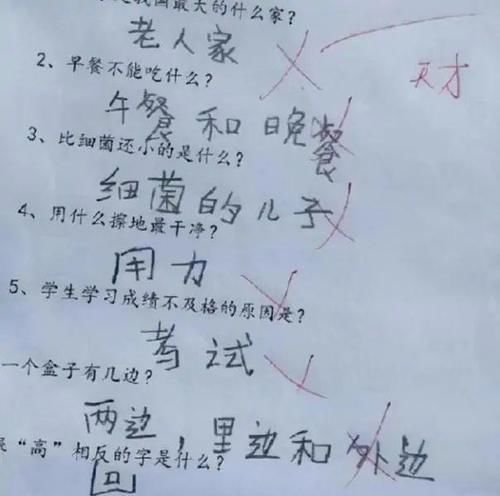 是我国最大的什么家?
老人家
天才
2、早餐不能吃什么?
午餐和晚餐
3、比细菌还小的是什么?
细菌的儿子
4、用什么擦地最干净?
用力
5、学生学习成绩不及格的原因是?
考试
一个盒子有几边?
两边,里边和外边
“高”相反的字是什么?